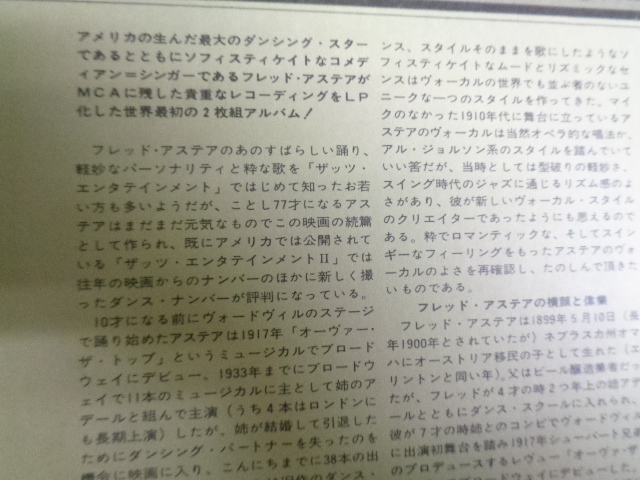 アメリカの生んだ最大のダンシング・スター
であるとともにソフィスティケイトなコメデ
ィアン=シンガーであるフレッド・アステアが
MCAに残した貴重なレコーディングをLP
化した世界最初の2枚組アルバム!
フレッド・アステアのあのすばらしい踊り、
軽妙なパーソナリティと粋な歌を「ザッツ・
エンタテインメント」ではじめて知ったお若
い方も多いようだが、ことし77才になるアス
テアはまだまだ元気なものでこの映画の続篇
として作られ、既にアメリカでは公開されて
いる「ザッツ・エンタテインメントⅡ」では
往年の映画からのナンバーのほかに新しく撮
ったダンス・ナンバーが評判になっている。
10才になる前にヴォードヴィルのステージ
で踊り始めたアステアは1917年「オーヴァー・
ザ・トップ」というミュージカルでブロード
ウェイにデビュー、1933年までにブロードウ
ェイで11本のミュージカルに主として姉のア
デールと組んで主演（うち4本はロンドンに
も長期上演）したが、姉が結婚して引退した
ためにダンシング・パートナーを失ったのを
機会に映画に入り、こんにちまでに38本の出
ンス、スタイルそのままを歌にしたようなソ
フィスティケイトなムードとリズミックなセ
ンスはヴォーカルの世界でも並ぶ者のないユ
ニークな一つのスタイルを作ってきた。マイ
クのなかった1910年代に舞台に立っているア
ステアのヴォーカルは当然オペラ的な唱法か、
アル・ジョルソン系のスタイルを踏んでいて
いい筈だが、当時としては型破りの軽妙さ、
スイング時代のジャズに通じるリズム感のよ
さがあり、彼が新しいヴォーカル・スタイル
のクリエイターであったようにも思えるので
ある。粋でロマンティックな、そしてスイン
ギーなフィーリングをもったアステアのヴォ
ーカルのよさを再確認し、たのしんで頂きた
いものである。
フレッド・アステアの横顔と偉業
フレッド・アステアは1899年5月10日（長
年1900年とされていたが）ネブラスカ州オマ
ハにオーストリア移民の子として生れた（エ
リントンと同い年）。父はビール醸造業者だっ
たが、フレッドが4才の時2年上の姉アデ
ールとともにダンス・スクールに入れられ、
彼が7才の時姉とのコンビでヴォードヴィ
に出演初舞台を踏み1917年シューバート兄弟
のプロデュースするレヴュー「オーヴァ・ザ
ードウェイにデビューした。